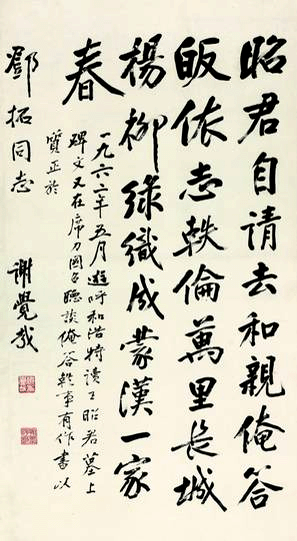 昭君自請去和親俺答
皈依志軼倫萬里長城
楊柳綠織成蒙漢一家
春
一九六二年五月遊呼和浩特讀了昭君墓上
碑文又在席力圖召聽談俺答軼事有作書以
質正於
鄧拓同志
謝覺哉